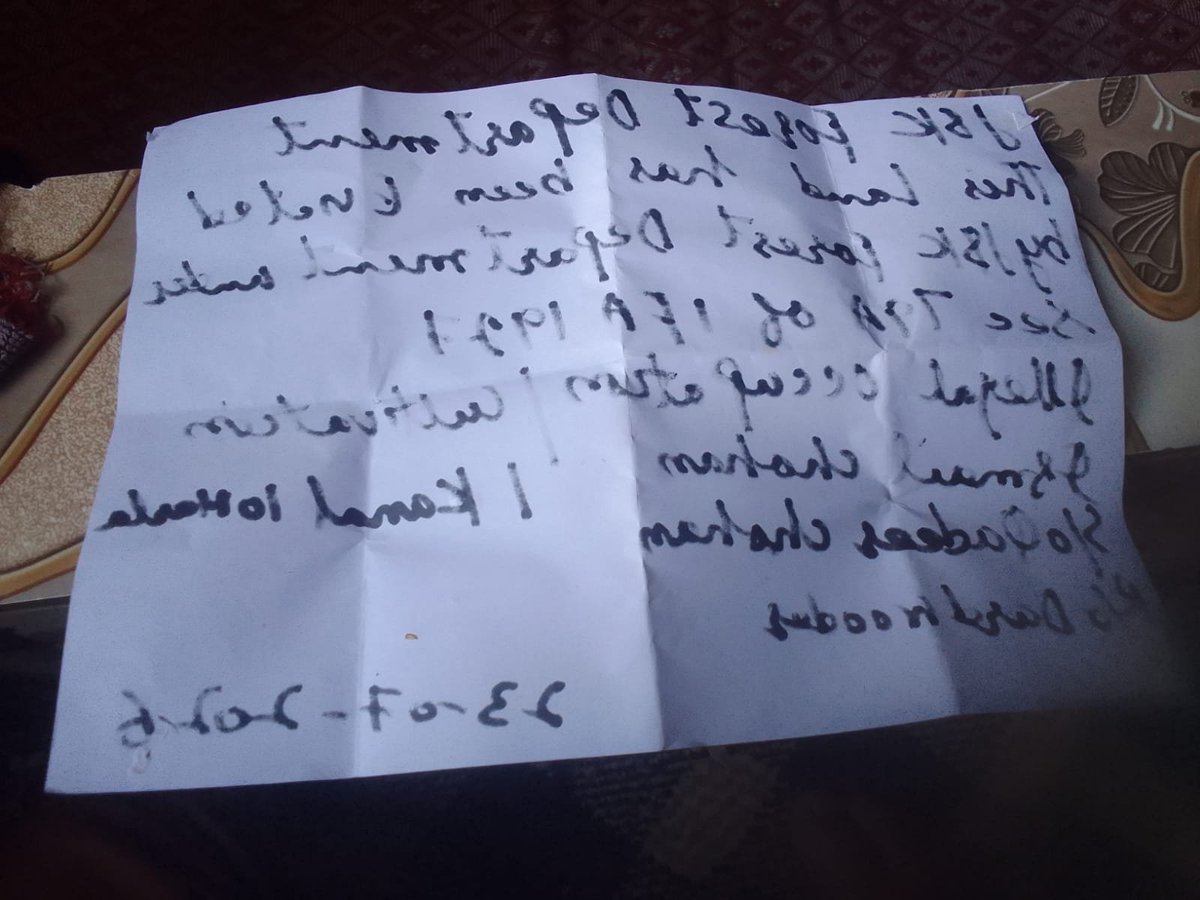 J&K Forest Department
This Land has been Eveted
by J&K Forest Department under
Sec 79A of IFA 1927
Illegal occupation / Cultivation
Ismail chohan
S/o Qadeer chohan 1 Kanal 10 Marla
R/o Dardwoodus
23-07-2025